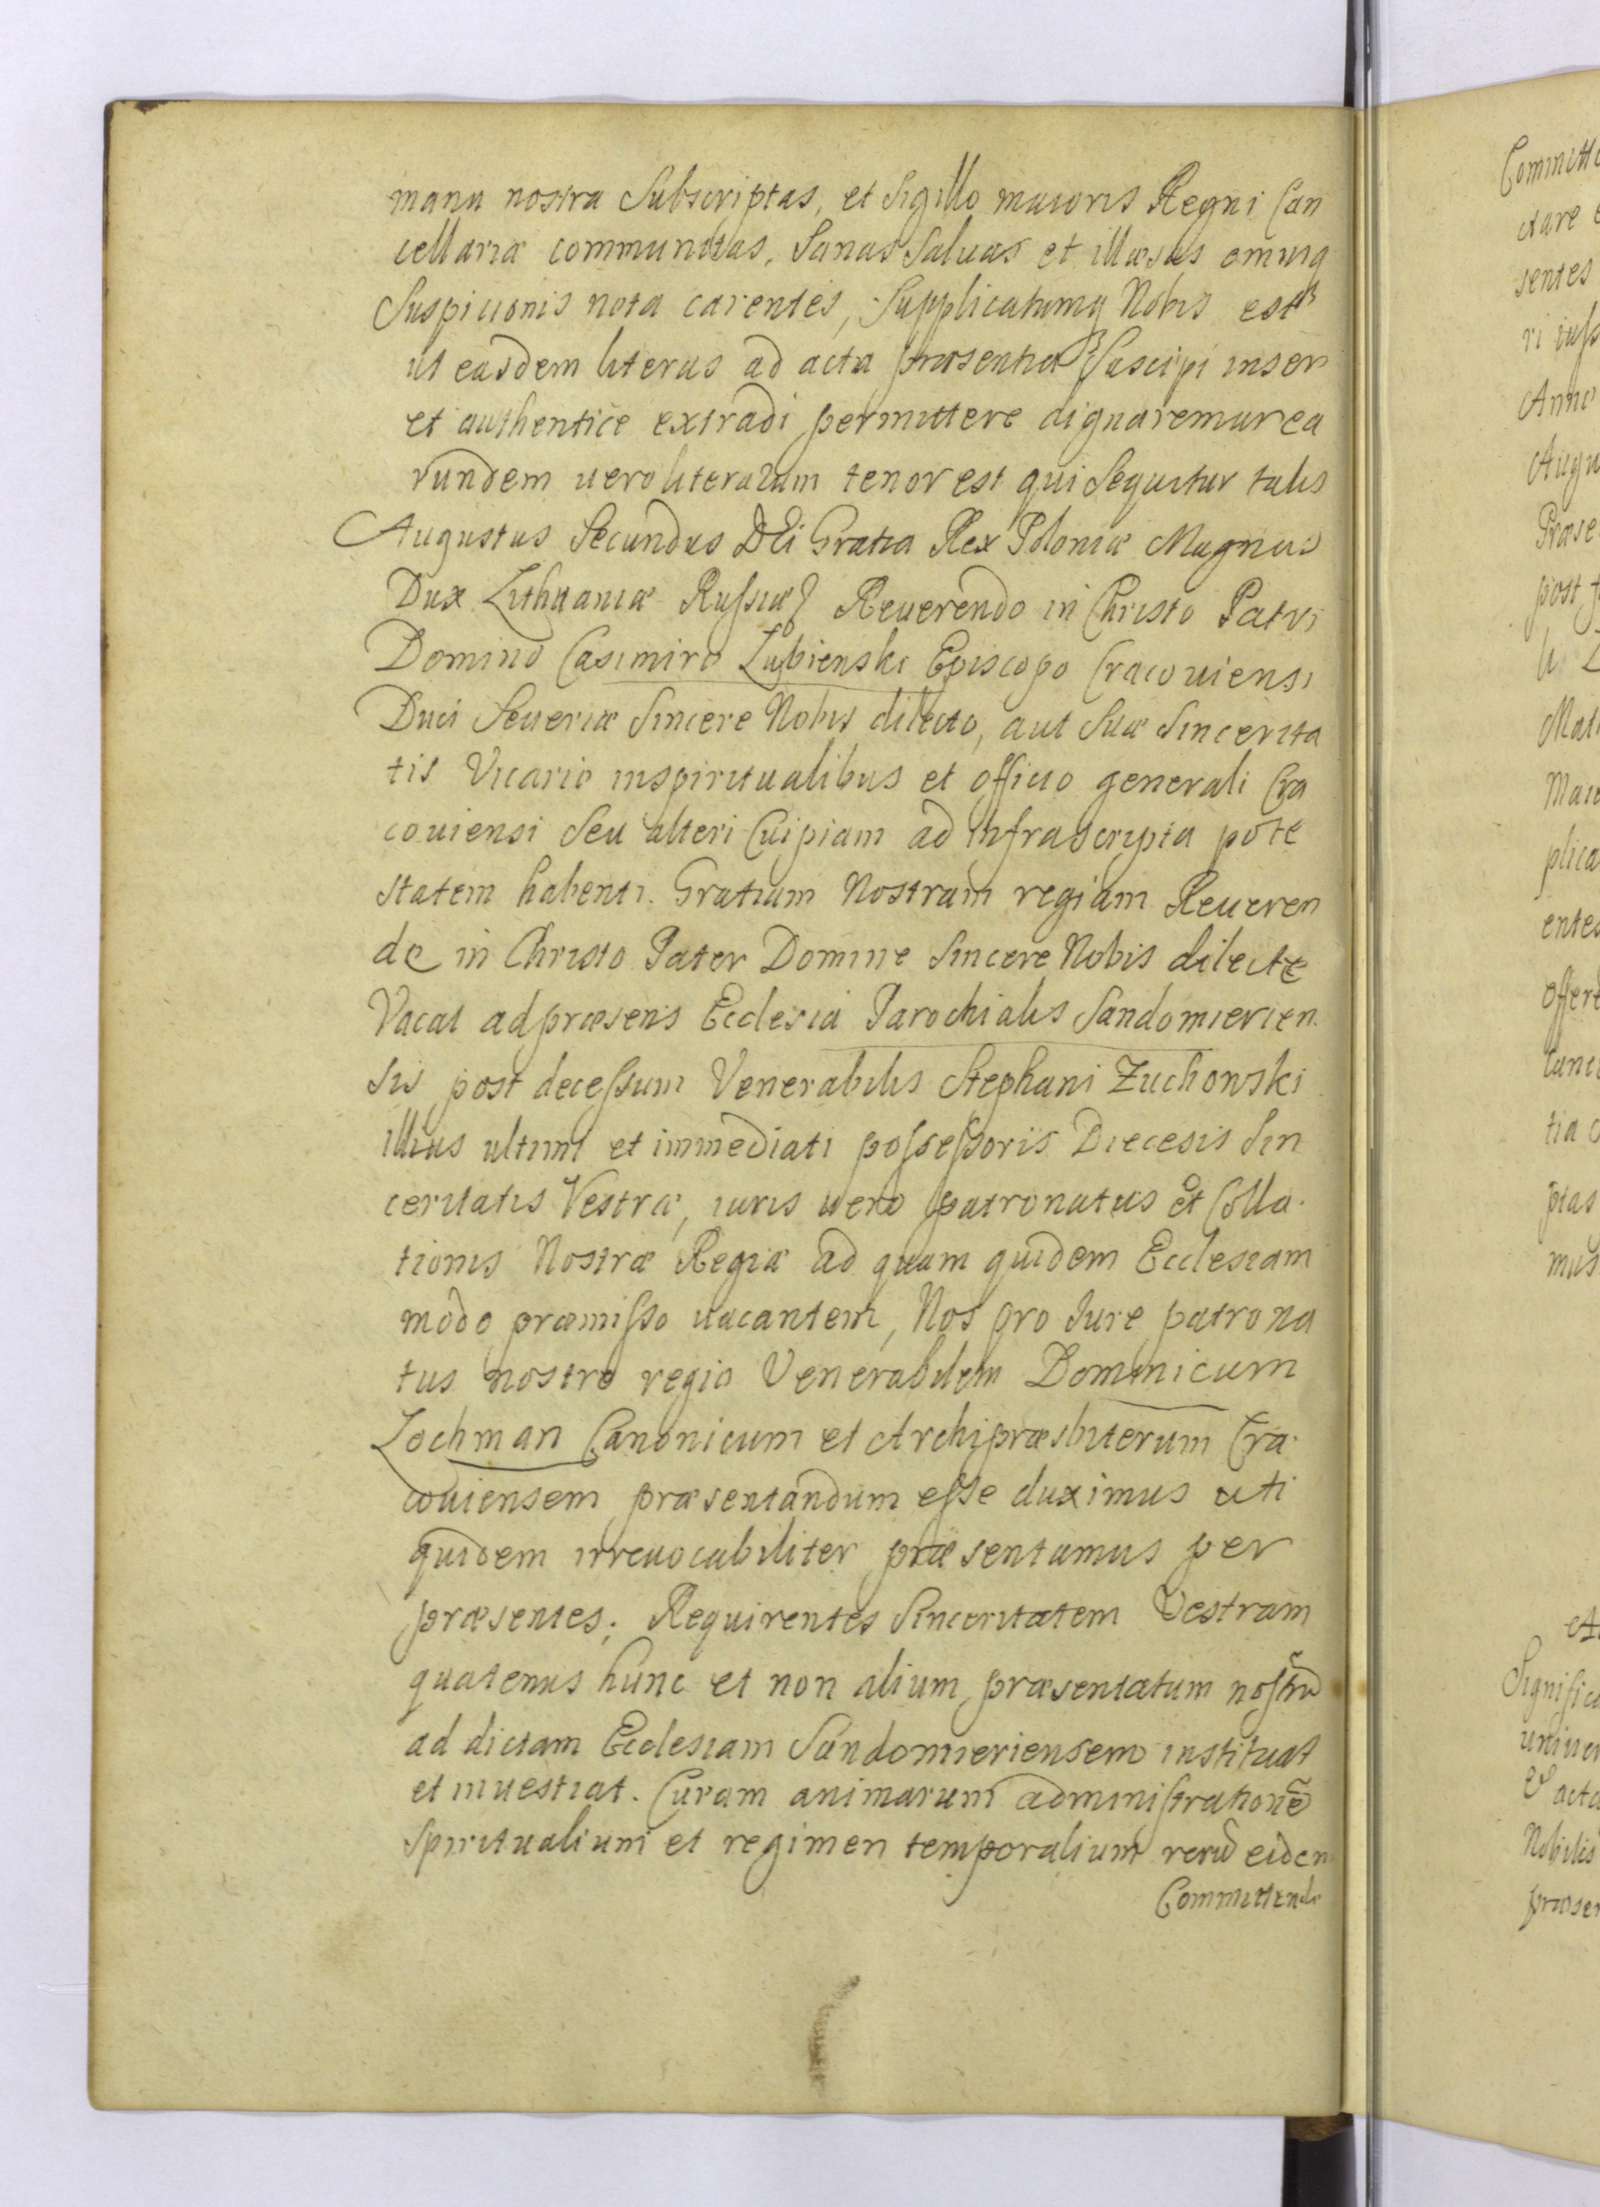 manu nostra Subscriptas, et Sigillo maioris Regni Can
cellariæ communitas, Sanas Saluas et illæsas omniq
Suspicionis nota carentes, Supplicatumq Nobis est
ut easdem literas ad acta præsentia Suscipi inser
et authentice extradi permittere dignaremur ea
rundem uero literarum tenor est qui Sequitur talis
Augustus Secundus DEi Gratia Rex Poloniæ Magnus
Dux Lithuaniæ Russiæ Reuerendo in Christo Patri
Domino Casimiro Łubienski Episcopo Cracouiensi
Duci Seueriæ Sincere Nobis dilecto, aut Suæ Sincerita
tis Vicario inspiritualibus et officio generali Cra
couiensi Seu alteri Cuipiam ad infrascripta pote
statem habenti. Gratiam Nostram regiam Reueren
de in Christo Pater Domine Sincere Nobis dilecte
Vacat ad præsens Ecclesia Parochialis Sandomierien
sis post decessum Venerabilis Stephani Zuchowski
illius ultimi et immediati possessoris Diecesis Sin
ceritatis Vestræ, iuris uero patronatus et Colla.
tionis Nostræ Regiæ ad quam quidem Ecclesiam
modo præmisso uacantem, Nos pro Jure patrona
tus nostro regio Venerabilem Dominicum
Lochman Canonicum et Archipræsbiterum Cra
couiensem præsentandum esse duximus uti
quidem irreuocabiliter præsentamus per
præsentes; Requirentes Sinceritatem Vestram
quatenus hunc et non alium præsentatum nostrũ
ad dictam Ecclesiam Sandomieriensem instituat
et inuestiat. Curam animarum administrationẽ
Spiritualium et regimen temporalium rerũ eidem
Committendo
Committe
ctare
sentes
ri iuss
Anno
Augu
Præse
post
Mat
Maio
plica
entes
offere
tia
ptas
mus
Significa
uniuer
acta
Nobilis
præsen